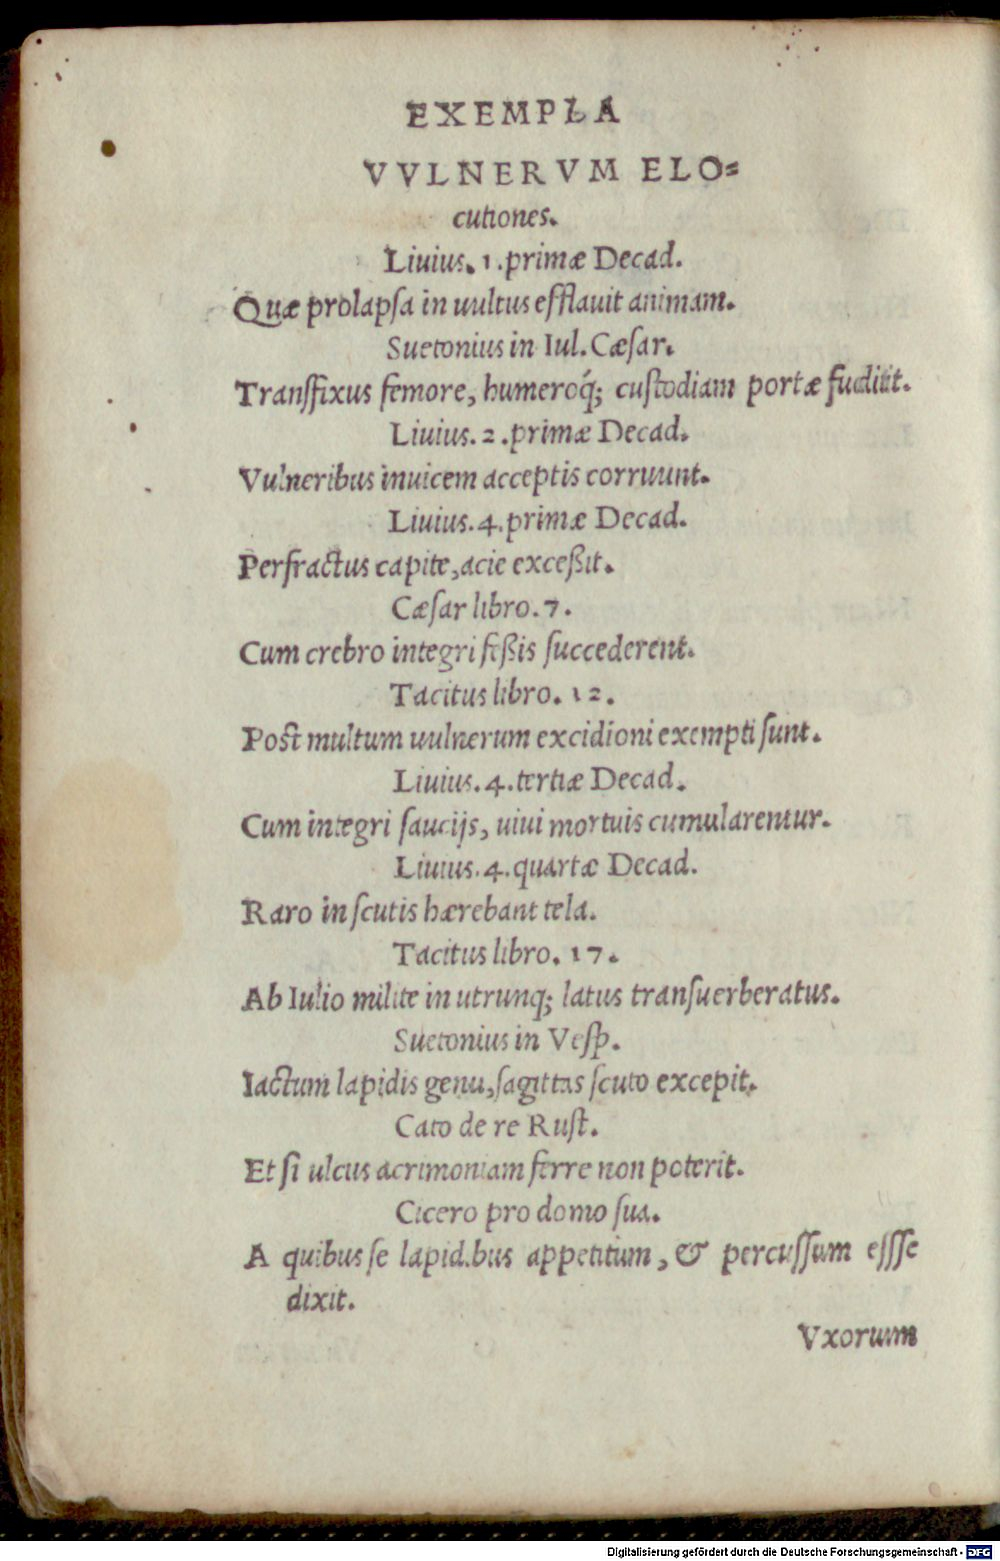 EXEMPLA
VVLNERVM ELO=
cutiones.
Liuius. 1. primæ Decad.
Quæ prolapsa in uultus efflauit animam.
Suetonius in Iul. Cæsar.
Transfixus femore, humeroq́; custodiam portæ
Liuius. 2. primæ Decad.
Vulneribus inuicem acceptis corruunt.
Liuius. 4. primæ Decad.
Perfractus capite, acie exceßit.
Cæsar libro. 7.
Cum crebro integri feßis succederent.
Tacitus libro. 12.
Post multum uulnerum excidioni exempti sunt.
Liuius. 4. tertiæ Decad.
Cum integri saucijs, uiui mortuis cumularentur.
Liuius. 4. quartæ Decad.
Raro in scutis hærebant tela.
Tacitus libro. 17.
Ab Iulio milite in utrunq; latus transuerberatus.
Suetonius in Vesp.
Iactum lapidis genu, sagittas scuto excepit.
Cato de re Rust.
Et si ulcus acrimoniam ferre non poterit.
Cicero pro domo sua.
A quibus se lapid.bus appetitum, & percussum essse
dixit.
Vxorum
Digitalisierung gefördert durch die Deutsche Forschungsgemeinschaft - DFG